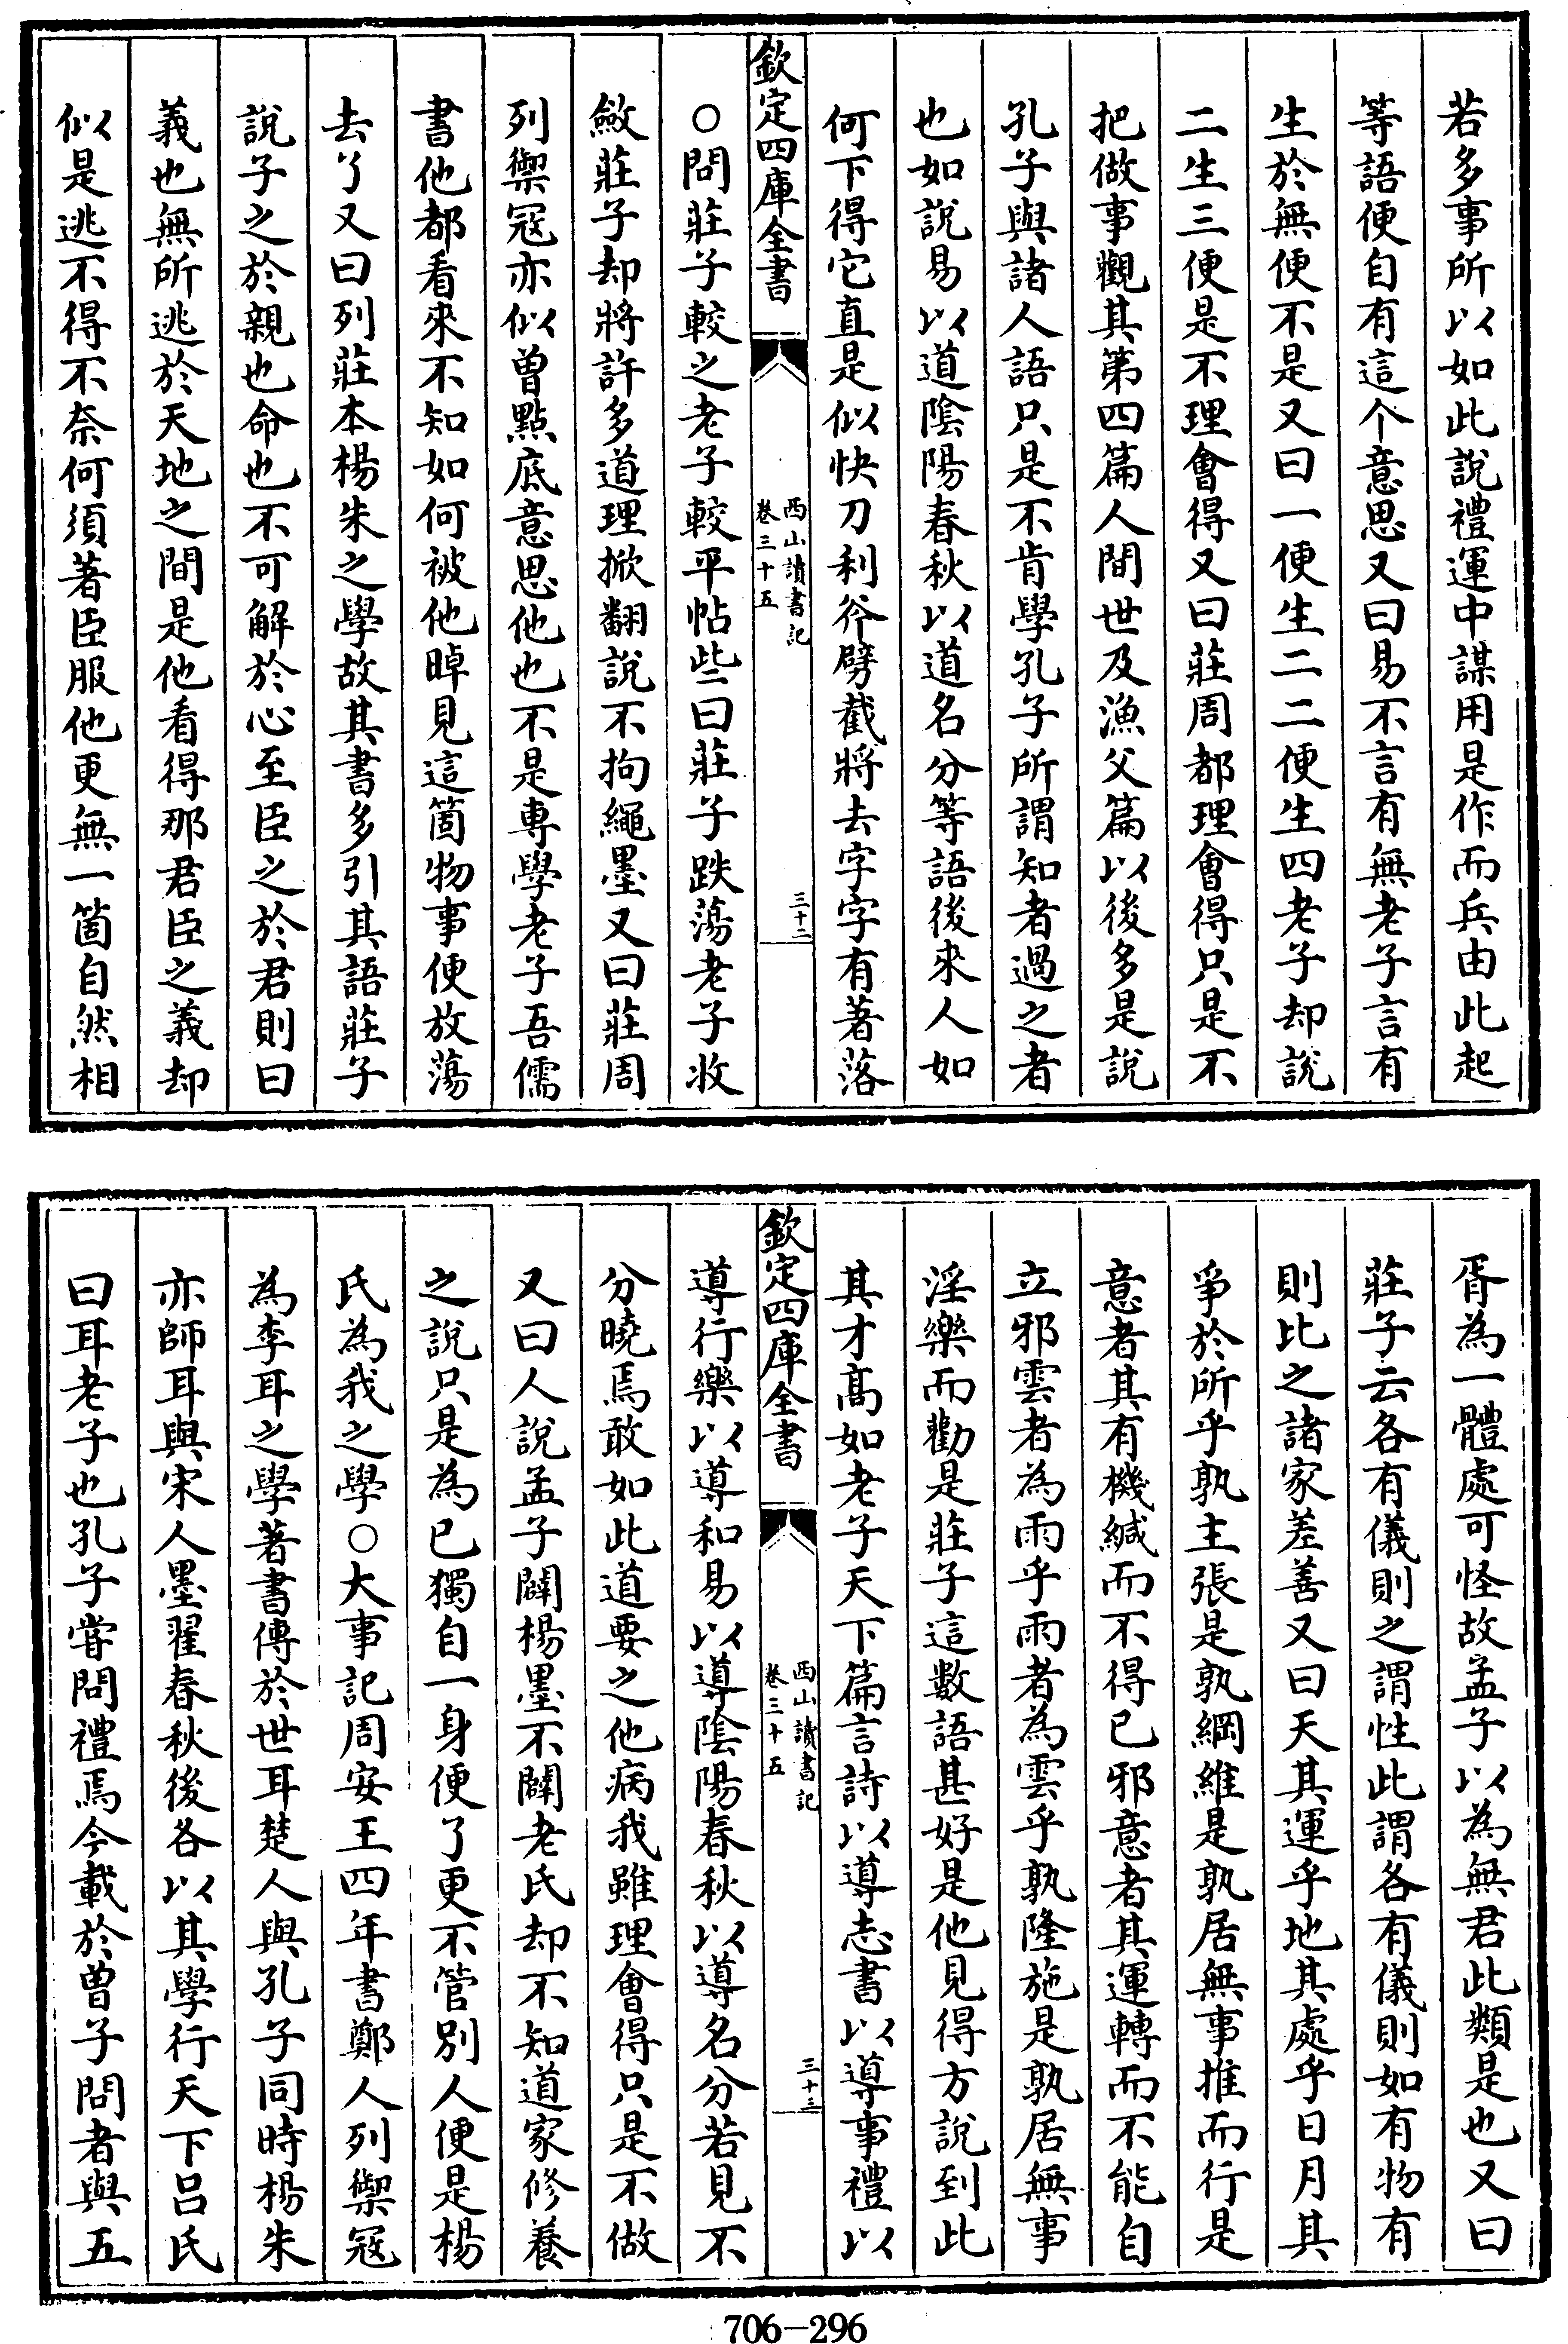 若多事所以如此說禮運中謀用是作而兵由此起
等語便自有這个意思又曰易不言有無老子言有
生於無便不是又曰一便生二二便生四老子却說
二生三便是不理會得又曰莊周都理會得只是不
把做事觀其第四篇人間世及漁父篇以後多是說
孔子與諸人語只是不肯學孔子所謂知者過之者
也如說易以道陰陽春秋以道名分等語後來人如
何下得它直是似快刀利斧劈截將去字字有著落
欽定四庫全書
西山讀書記
卷三十五
三十二
○問莊子較之老子較平帖些曰莊子跌蕩老子收
斂莊子却將許多道理掀翻說不拘繩墨又曰莊周
列禦冦亦似曾點底意思他也不是專學老子吾儒
書他都看來不知如何被他晫見這箇物事便放蕩
去了又曰列莊本楊朱之學故其書多引其語莊子
說子之於親也命也不可解於心至臣之於君則曰
義也無所逃於天地之間是他看得那君臣之義却
似是逃不得不奈何須著臣服他更無一箇自然相
胥為一體處可怪故孟子以為無君此類是也又曰
莊子云各有儀則之謂性此謂各有儀則如有物有
則比之諸家差善又曰天其運乎地其處乎日月其
爭於所乎孰主張是孰綱維是孰居無事推而行是
意者其有機緘而不得已邪意者其運轉而不能自
立邪雲者為雨乎雨者為雲乎孰隆施是孰居無事
淫樂而勸是莊子這數語甚好是他見得方說到此
其才高如老子天下篇言詩以導志書以導事禮以
欽定四庫全書
西山讀書記
卷三十五
三十三
導行樂以導和易以導陰陽春秋以導名分若見不
分曉焉敢如此道要之他病我雖理會得只是不做
又曰人說孟子闢楊墨不闢老氏却不知道家修養
之說只是為已獨自一身便了更不管別人便是楊
氏為我之學○大事記周安王四年書鄭人列禦冦
為李耳之學著書傳於世耳楚人與孔子同時楊朱
亦師耳與宋人墨翟春秋後各以其學行天下吕氏
曰耳老子也孔子嘗問禮焉今載於曾子問者與五
706-296